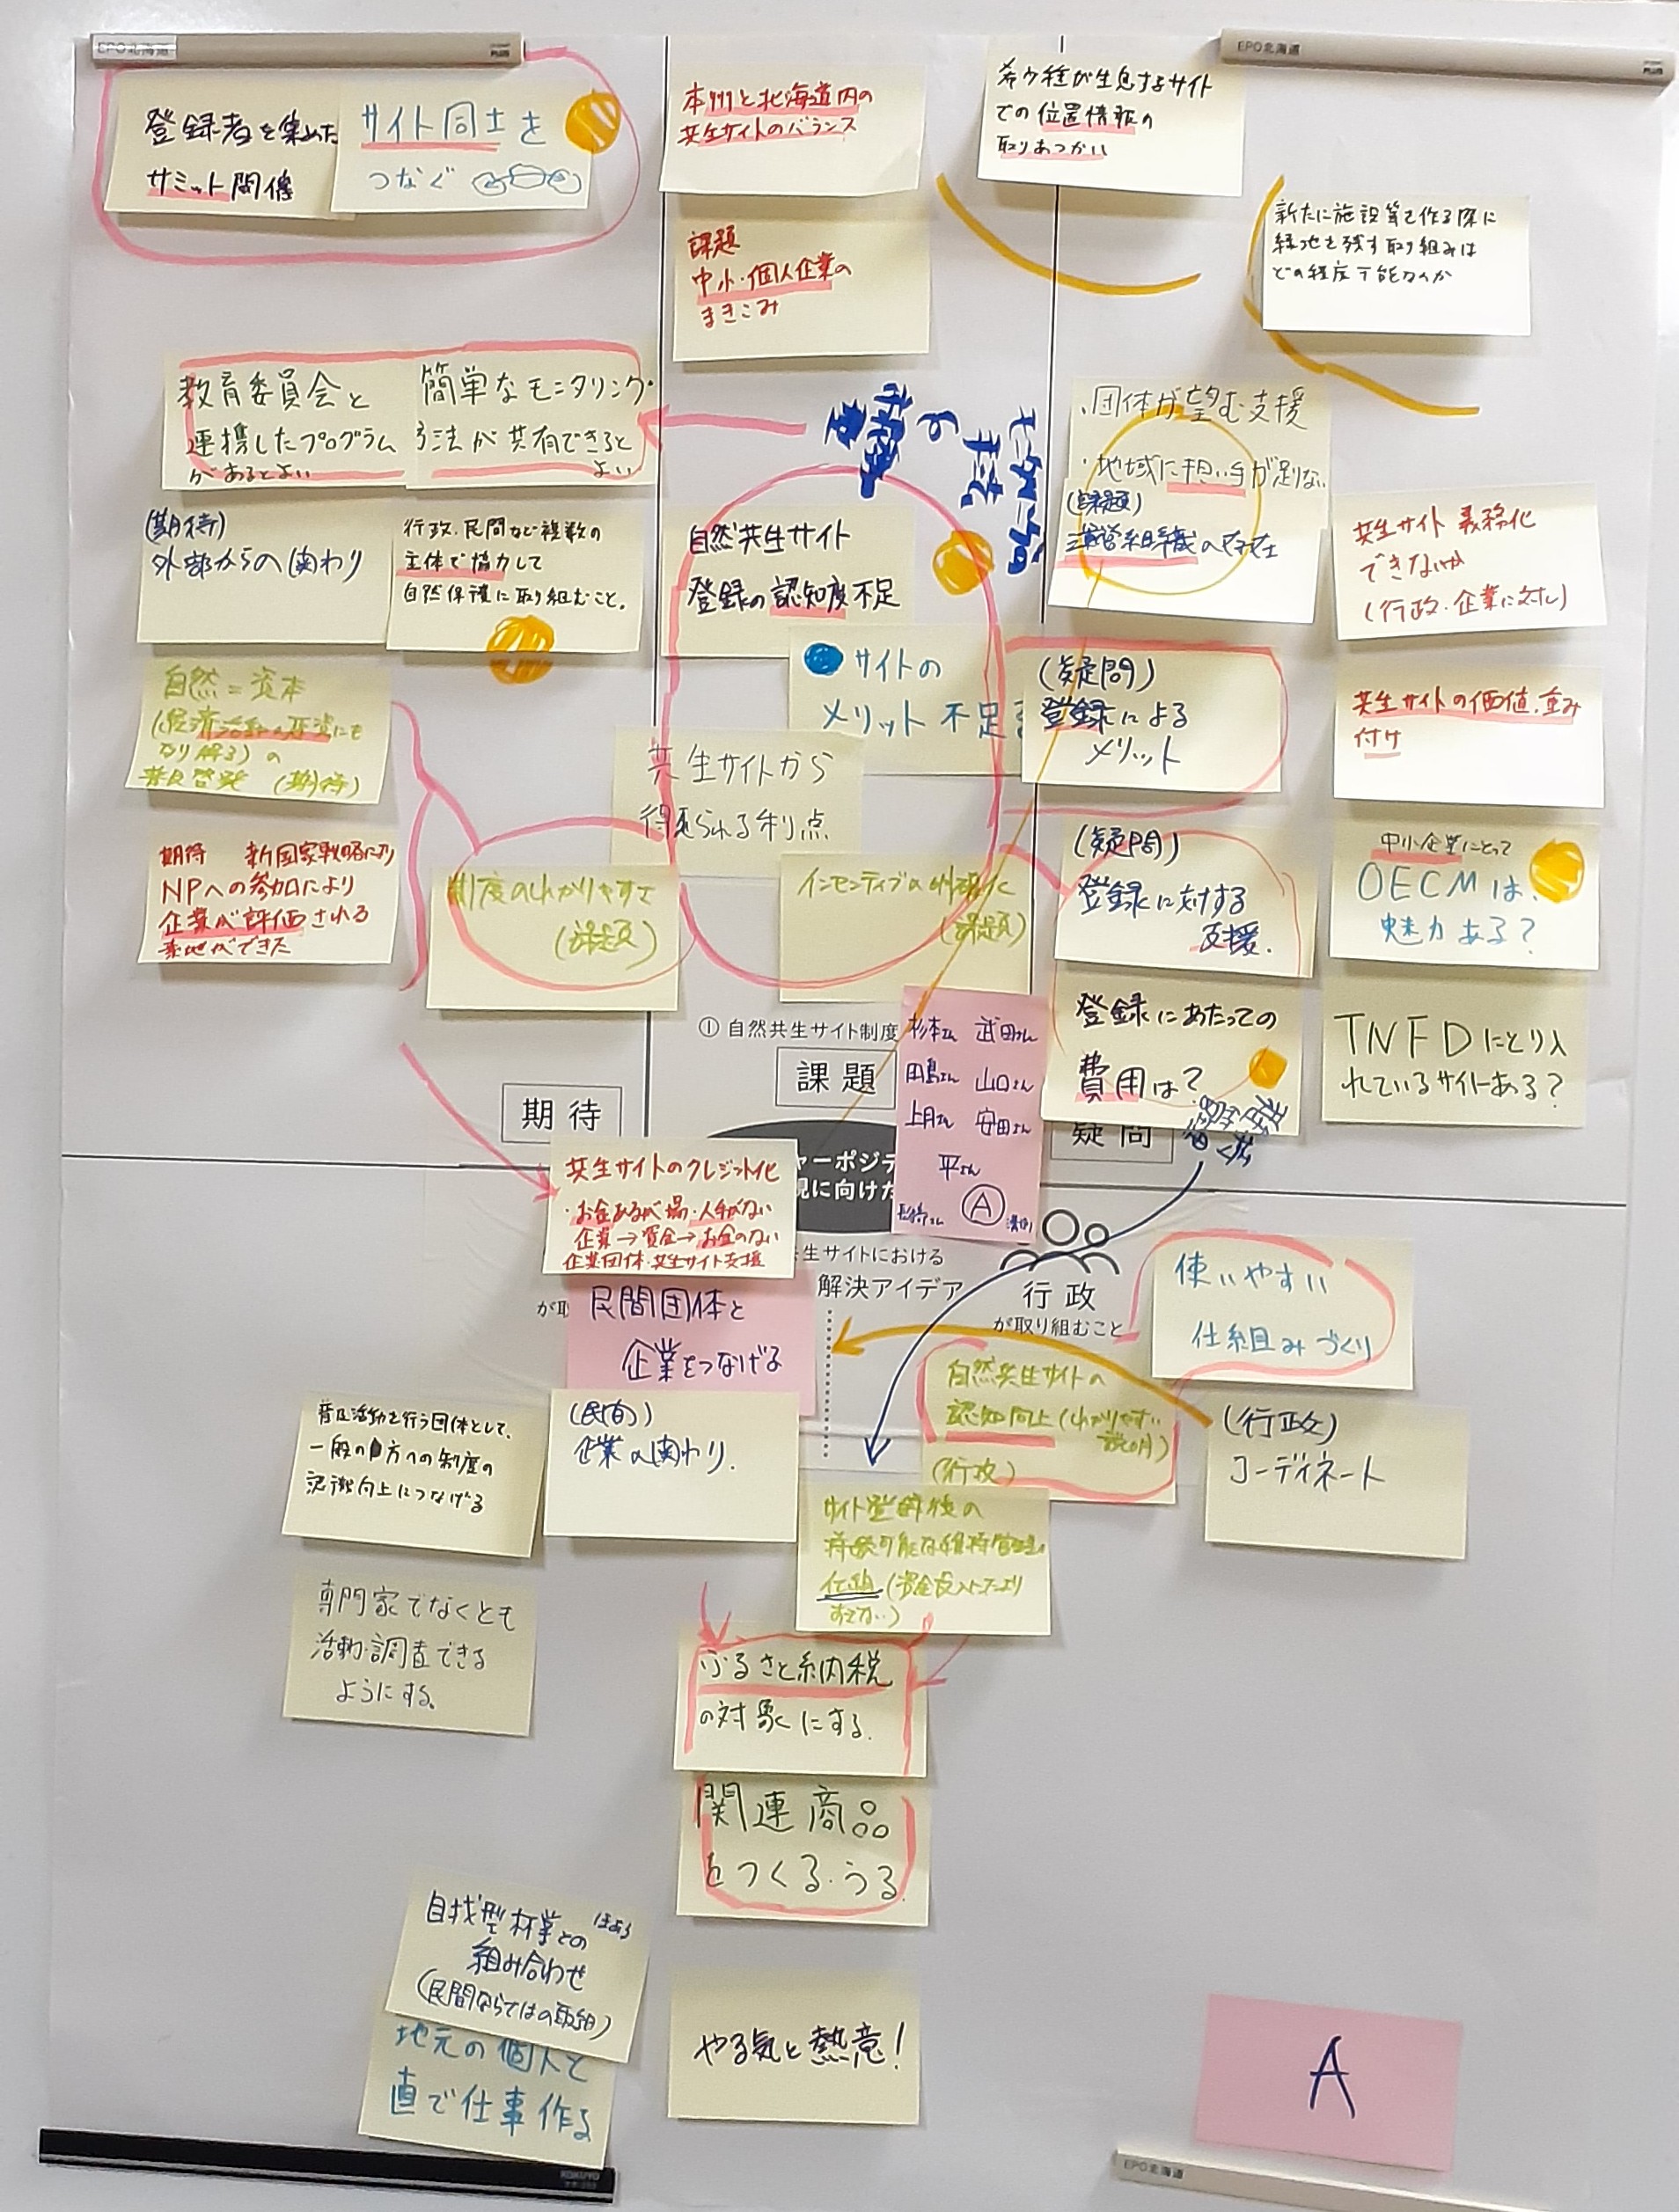 EPO北海道
EPO北海道
登録者を集めた
サミット開催
サイト同士を
つなぐ
本州と北海道内の
共生サイトのバランス
希少種が生息するサイト
での位置情報の
取りあつかい
課題
中小・個人企業の
まきこみ
新たに施設等を作る際に
緑地を残す取り組みは
どの程度可能なのか
教育委員会と
連携したプログラム
があるとよい
簡単なモニタリング
方法が共有できると
よい
・団体が望む支援
・地域に担い手が足りない
(課題)
運営組織の存在
(期待)
外部からの関わり
行政、民間など複数の
主体で協力して
自然保護に取り組むこと。
自然共生サイト
登録の認知度不足
共生サイト義務化
できないか
(行政・企業に対し)
自然=資本
(経済活動の投資にも
なり得る)の
普及啓発 (期待)
サイトの
メリット不足
(疑問)
登録による
メリット
共生サイトの価値、重み
付け
共生サイトから
得られる利点
期待 新国家戦略により
NPへの参加により
企業が評価される
素地ができた
制度のわかりやすさ
(課題)
インセンティブの明確化
(課題)
(疑問)
登録に対する
支援.
中小企業にとって
OECMは、
魅力ある?
登録にあたっての
費用は?
TNFDにとり入
れているサイトある?
① 自然共生サイト制度
課題
期待
疑問
杉本さん 武田さん
田島さん 山口さん
上月さん 安田さん
平さん
A
共生サイトのクレジット化
・お金あるが場・人手がない
企業→資金→お金のない
企業団体・共生サイト支援
生サイトにおける
解決アイデア
行政
が取り組むこと
民間団体と
企業をつなげる
使いやすい
仕組みづくり
自然共生サイトの
認知向上(わかりやすい
説明)
(行政)
(行政)
コーディネート
普及活動を行う団体として、
一般の方への制度の
認識向上につなげる
(民間)
企業の関わり.
サイト登録後の
持続可能な維持管理の
仕組
専門家でなくとも
活動・調査できる
ようにする。
ふるさと納税
の対象にする.
関連商品
をつくる・うる.
自伐型林業との
組み合わせ
(民間ならではの取組)
地元の個人と
直で仕事作る
やる気と熱意!
A
EPO北海道